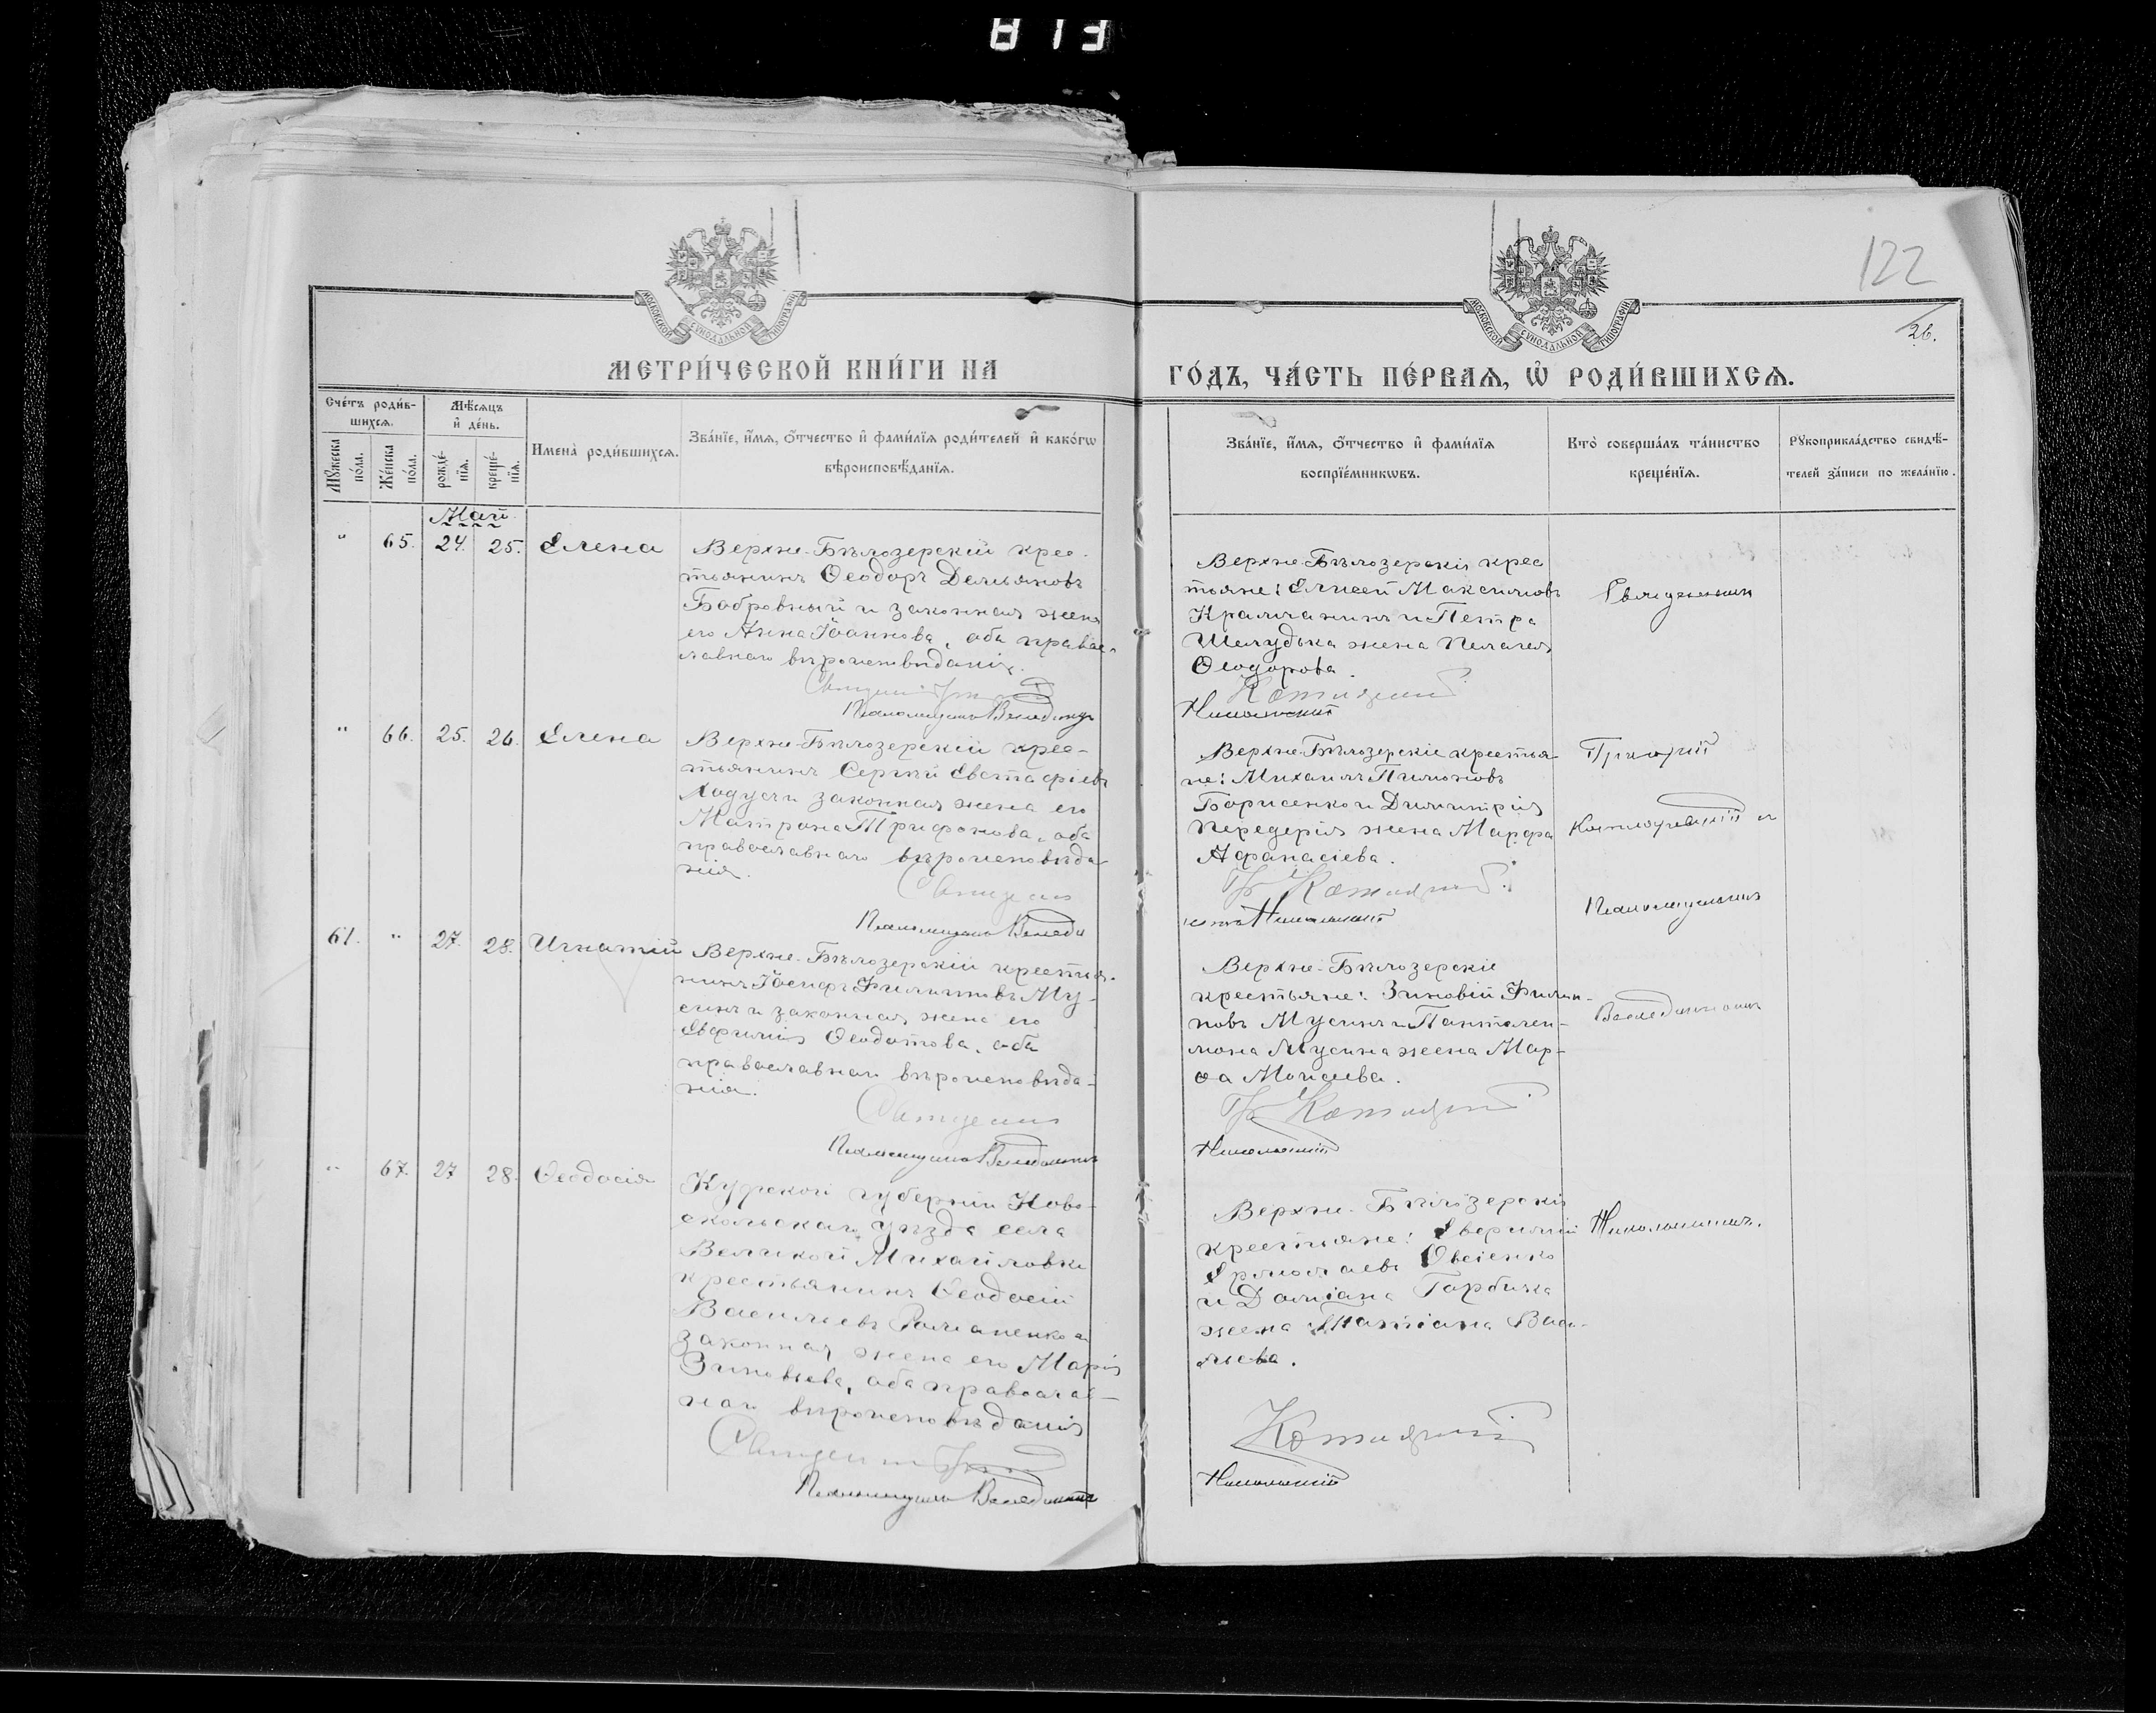 813
122
26.
МОСКОВСКОЙ СУНОДАЛЬНОЙ ТИПОГРАФІИ
МОСКОВСКОЙ СУНОДАЛЬНОЙ ТИПОГРАФІИ
МЕТРИ́ЧЕСКОЙ КНИ́ГИ НА
ГО́ДЪ, ЧА́СТЬ ПЕ́РВАѦ, Ѿ РОДИ́ВШИХСѦ.
Сче́тъ роди́в-
шихсѧ.
Мѣ́сѧцъ
и҆ де́нь.
Мꙋ́жеска
по́ла.
Же́нска
по́ла.
рожде́-
нїѧ.
креще́-
нїѧ.
Имена̀ роди́вшихсѧ.
Зва́нїе, и҆́мѧ, ѻ҆́тчество и҆ фами́лїѧ роди́телей и҆ како́гѡ
вѣроисповѣ́данїѧ.
Зва́нїе, и҆́мѧ, ѻ҆́тчество и҆ фами́лїѧ
воспрїе́мникѡвъ.
Кто̀ соверша́лъ та́инство
креще́нїѧ.
Рꙋкоприкла́дство свидѣ́-
телей за́писи по жела́нїю.
Май
" 65. 24. 25. Елена
Верхне-Бѣлозерскій крес-
тьянинъ Ѳеодоръ Демьяновъ
Бобровный и законная жена
его Анна Іоаннова, оба правос-
лавнаго вѣроисповѣданія.
Псаломщикъ
Верхне-Бѣлозерскіе крес
тьяне: Елисей Максимовъ
Крамчанинъ и Петра
Шелудька жена Пелагея
Ѳеодорова.
Никольскій
Священникъ
" 66. 25. 26. Елена
Верхне-Бѣлозерскій крес-
тьянинъ Сергѣй Евстафіевъ
Ходусъ и законная жена его
Матрона Трифонова, оба
православнаго вѣроисповѣда
нія.
Священникъ
Псаломщикъ
Верхне-Бѣлозерскіе крестья-
не: Михаилъ Пимоновъ
Борисенко и Димитрія
Передерія жена Марфа
Афанасіева.
Никольскій
Григорій
и
Псаломщикъ
61. " 27. 28. Игнатій
Верхне-Бѣлозерскій крестья-
нинъ Іосифъ Филипповъ Му-
синъ и законная жена его
Евфимія Ѳеодотова, оба
православнаго вѣроисповѣда-
нія.
Священникъ
Псаломщикъ
Верхне-Бѣлозерскіе
крестьяне: Зиновій Филип-
повъ Мусинъ и Пантелеи-
мона Мусина жена Мар-
ѳа Моисеева.
Никольскій
" 67. 27 28. Ѳеодосія
Курской губерніи Ново-
скольскаго уѣзда села
Великой Михайловки
крестьянинъ Ѳеодосій
Васильевъ Романенко и
законная жена его Марія
Зиновьева, оба православ-
наго вѣроисповѣданія
Священникъ
Псаломщикъ
Верхне-Бѣлозерскіе
крестьяне: Евфимій
Ермолаевъ Овсіенко
и Даміана Горбика
жена Татіана Васи-
льева.
Никольскій
Никольскимъ.